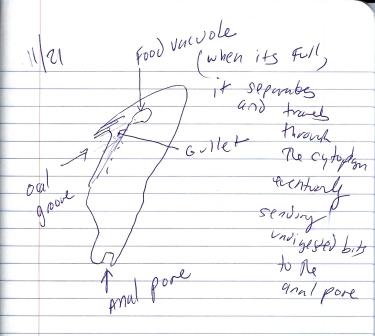 11/21
Food vacuole
(when its full,
it separates
and travels
through
the cytoplasm
eventually
sending
undigested bits
to the
anal pore
Gullet
oral
groove
Anal pore